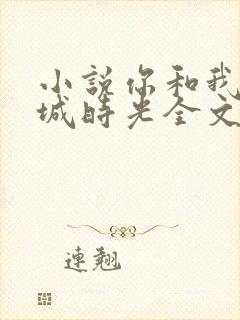 小説你和我
城時光全文
連翹